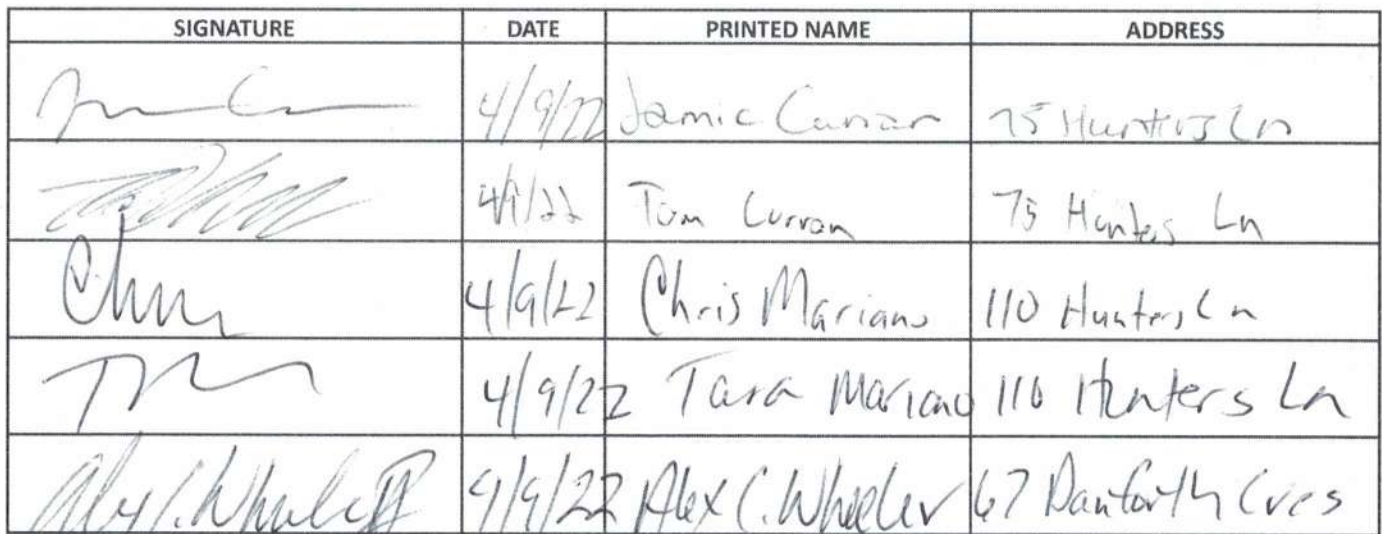 SIGNATURE DATE PRINTED NAME ADDRESS
4/9/22 Jamie Curran 75 Hunters Ln
4/9/22 Tom Curran 75 Hunters Ln
Chris 4/9/22 Chris Mariano 110 Hunters Ln
4/9/22 Tara Mariano 110 Hunters Ln
Alex C. Wheeler 4/9/22 Alex C. Wheeler 67 Danforth Cres